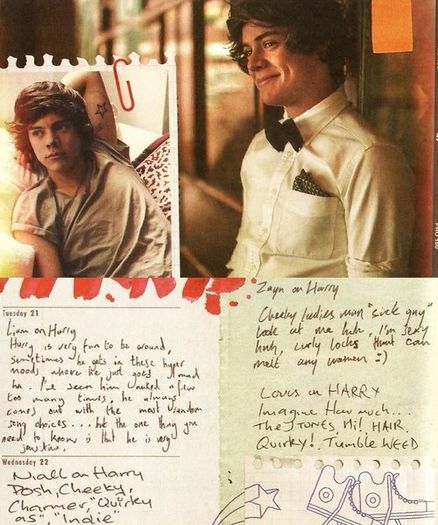 Tuesday 21
Liam on Harry
Harry is very fun to be around,
sometimes he gets in these hyper
moods where he just goes
ha. I've seen him naked a few
too many times, he always
comes out with the most random
song choices... but the one thing you
need to know is that he is very

Wednesday 22
Niall on Harry
Posh, Cheeky,
Charmer, "Quirky
as", "Indie"
Zayn on Harry
Cheeky ladies man "sick guy"
look at me huh, I'm sexy
huh, curly locks that can
melt any women :)
Louis on HARRY
Imagine How much...
The STONES, Hi! HAIR,
Quirky! Tumble WEED